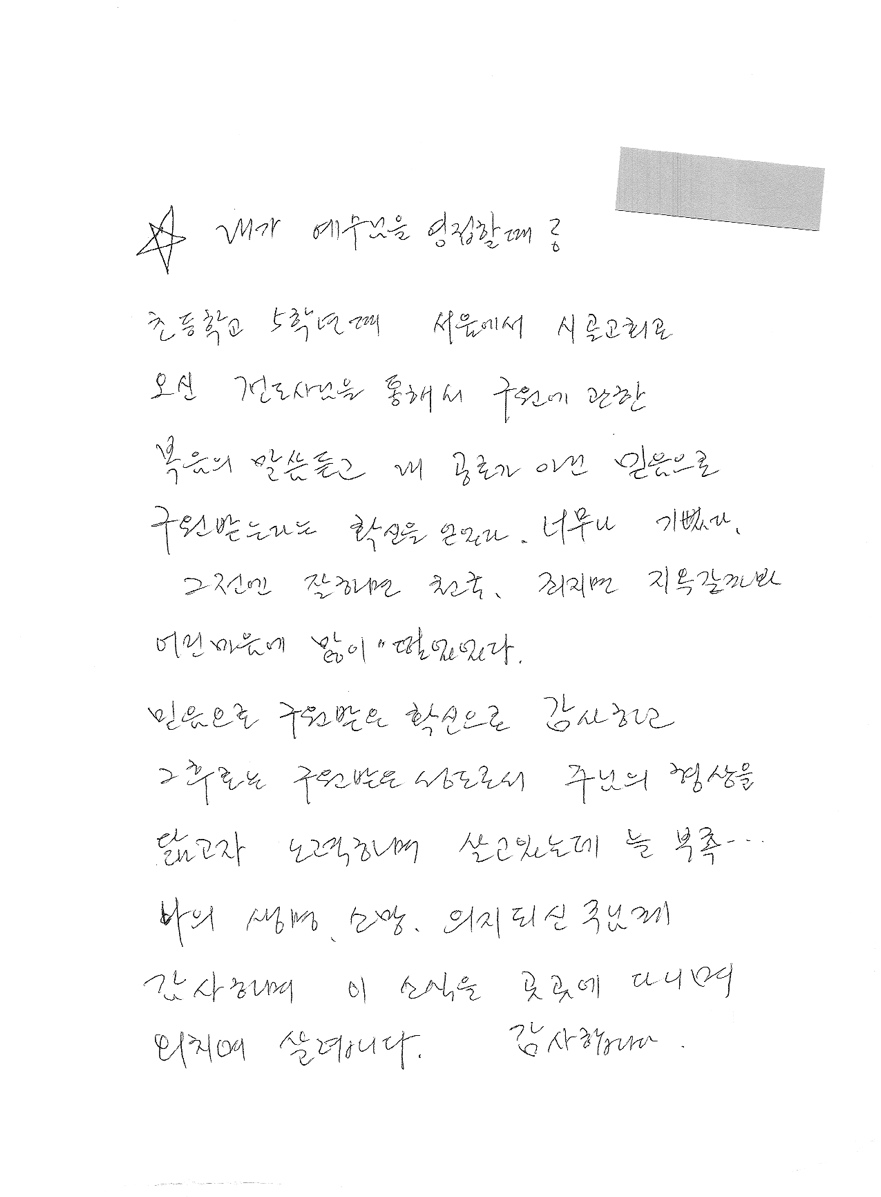 ☆ 내가 예수님을 영접할때 :
초등학교 5학년때 서울에서 시골교회로
오신 전도사님을 통해서 구원에 관한
복음의 말씀듣고 내 공로가 아닌 믿음으로
구원받는다는 확신을 얻었다. 너무나 기뻤다.
그전엔 잘하면 천국, 죄지면 지옥갈까봐
어린마음에 맘이 떨었었다.
믿음으로 구원받은 확신으로 감사하고
그후로는 구원받은 성도로서 주님의 형상을
닮고자 노력하며 살고있는데 늘 부족...
나의 생명, 소망, 의지되신 주님께
감사하며 이 소식을 곳곳에 다니며
외치며 살렵니다. 감사합니다.